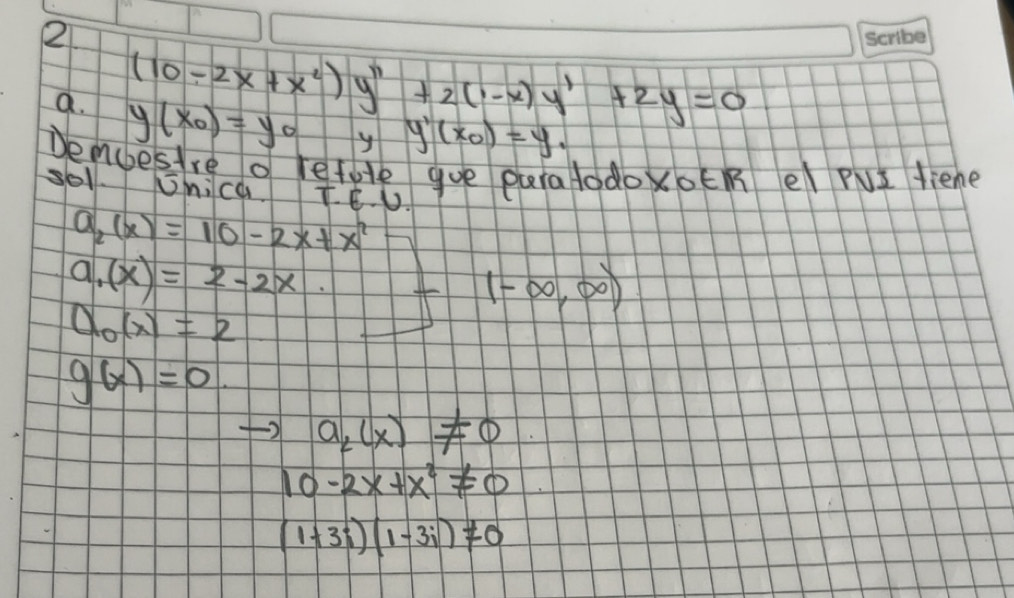 Scribe
2.
(10-2x+x²)y" +2(1-x)y' +2y=0
a. y(x0)=y0 y y'(x0)=y1
Demuestre o refute que para todo x0∈R el PVI tiene
sol. Única. T.E.U.
a₂(x) = 10-2x+x²
a₁(x) = 2-2x. (-∞,∞)
a₀(x) = 2
g(x) = 0.
→ a₂(x) ≠ 0
10-2x+x² ≠ 0
(1+3i)(1-3i) ≠ 0